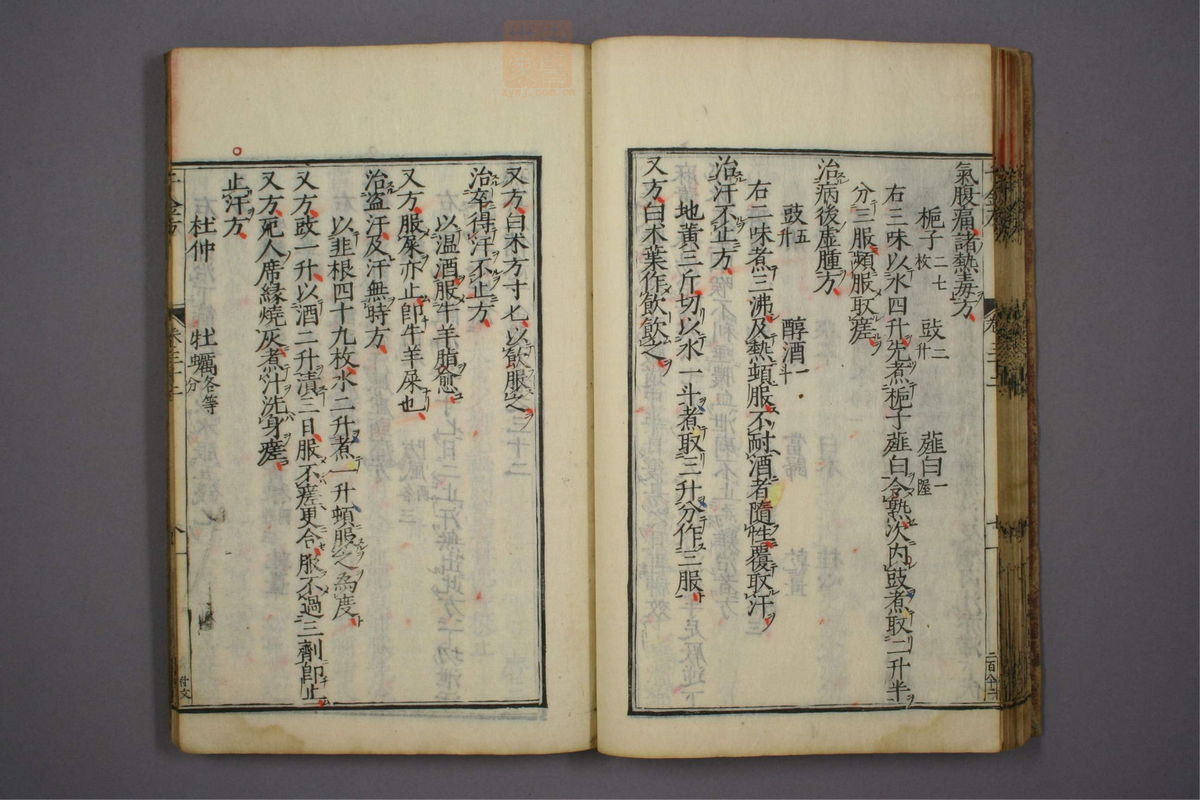 氣腹痛諸熱毒方
梔子二七枚 豉二升 薤白一握
右三味以水四升先煮梔子薤白令熟次内豉煮取二升半
分三服頻服取瘥
治病後虛腫方
豉五升 醇酒一斗
右二味煮三沸及熱頓服不耐酒者隨性覆取汗
治汗不止方
地黃三斤切以水一斗煮取三升分作三服
又方白朮葉作飲飲之
又方白朮方寸匕以飲服之三十二
治卒得汗不止方
以温酒服牛羊脂愈
又方服屎亦止即牛羊屎也
治盗汗及汗無時方
以韭根四十九枚水二升煮一升頓服之為度
又方豉一升以酒二升漬三日服不瘥更令服不過三劑即止
又方死人席緣燒灰煮汁洗身瘥
止汗方
杜仲 牡蠣各等分